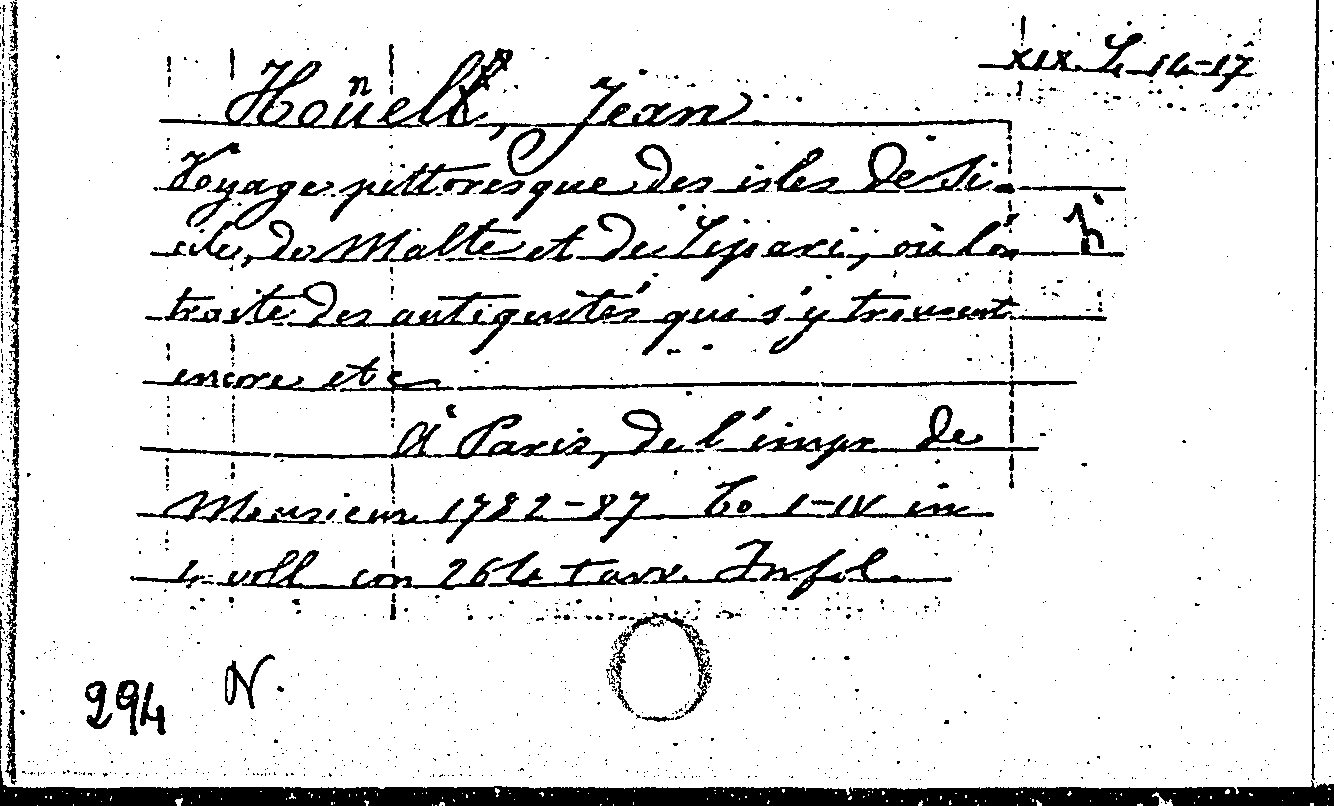 XIX. L. 14-17
Hoüell, Jean
Voyage pittoresque des isles de Si-
cile, de Malte et de Lipari, où l'on
traite des antiquités qui s'y trouvent
encore etc
À Paris, de l'impr. de
Monsieur 1782-87 To I-IV in
4 voll con 264 tavv. In fol.
294 N.